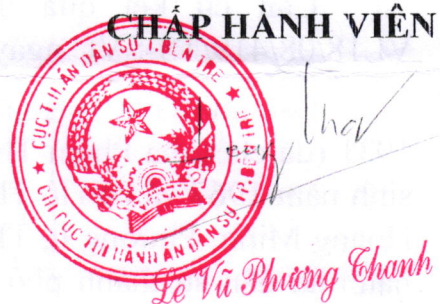 CHẤP HÀNH VIÊN
CỤC T.H.ÁN DÂN SỰ T.BẾN TRE
CHI CỤC THI HÀNH ÁN DÂN SỰ TP.BẾN TRE
Lê Vũ Phương Thanh